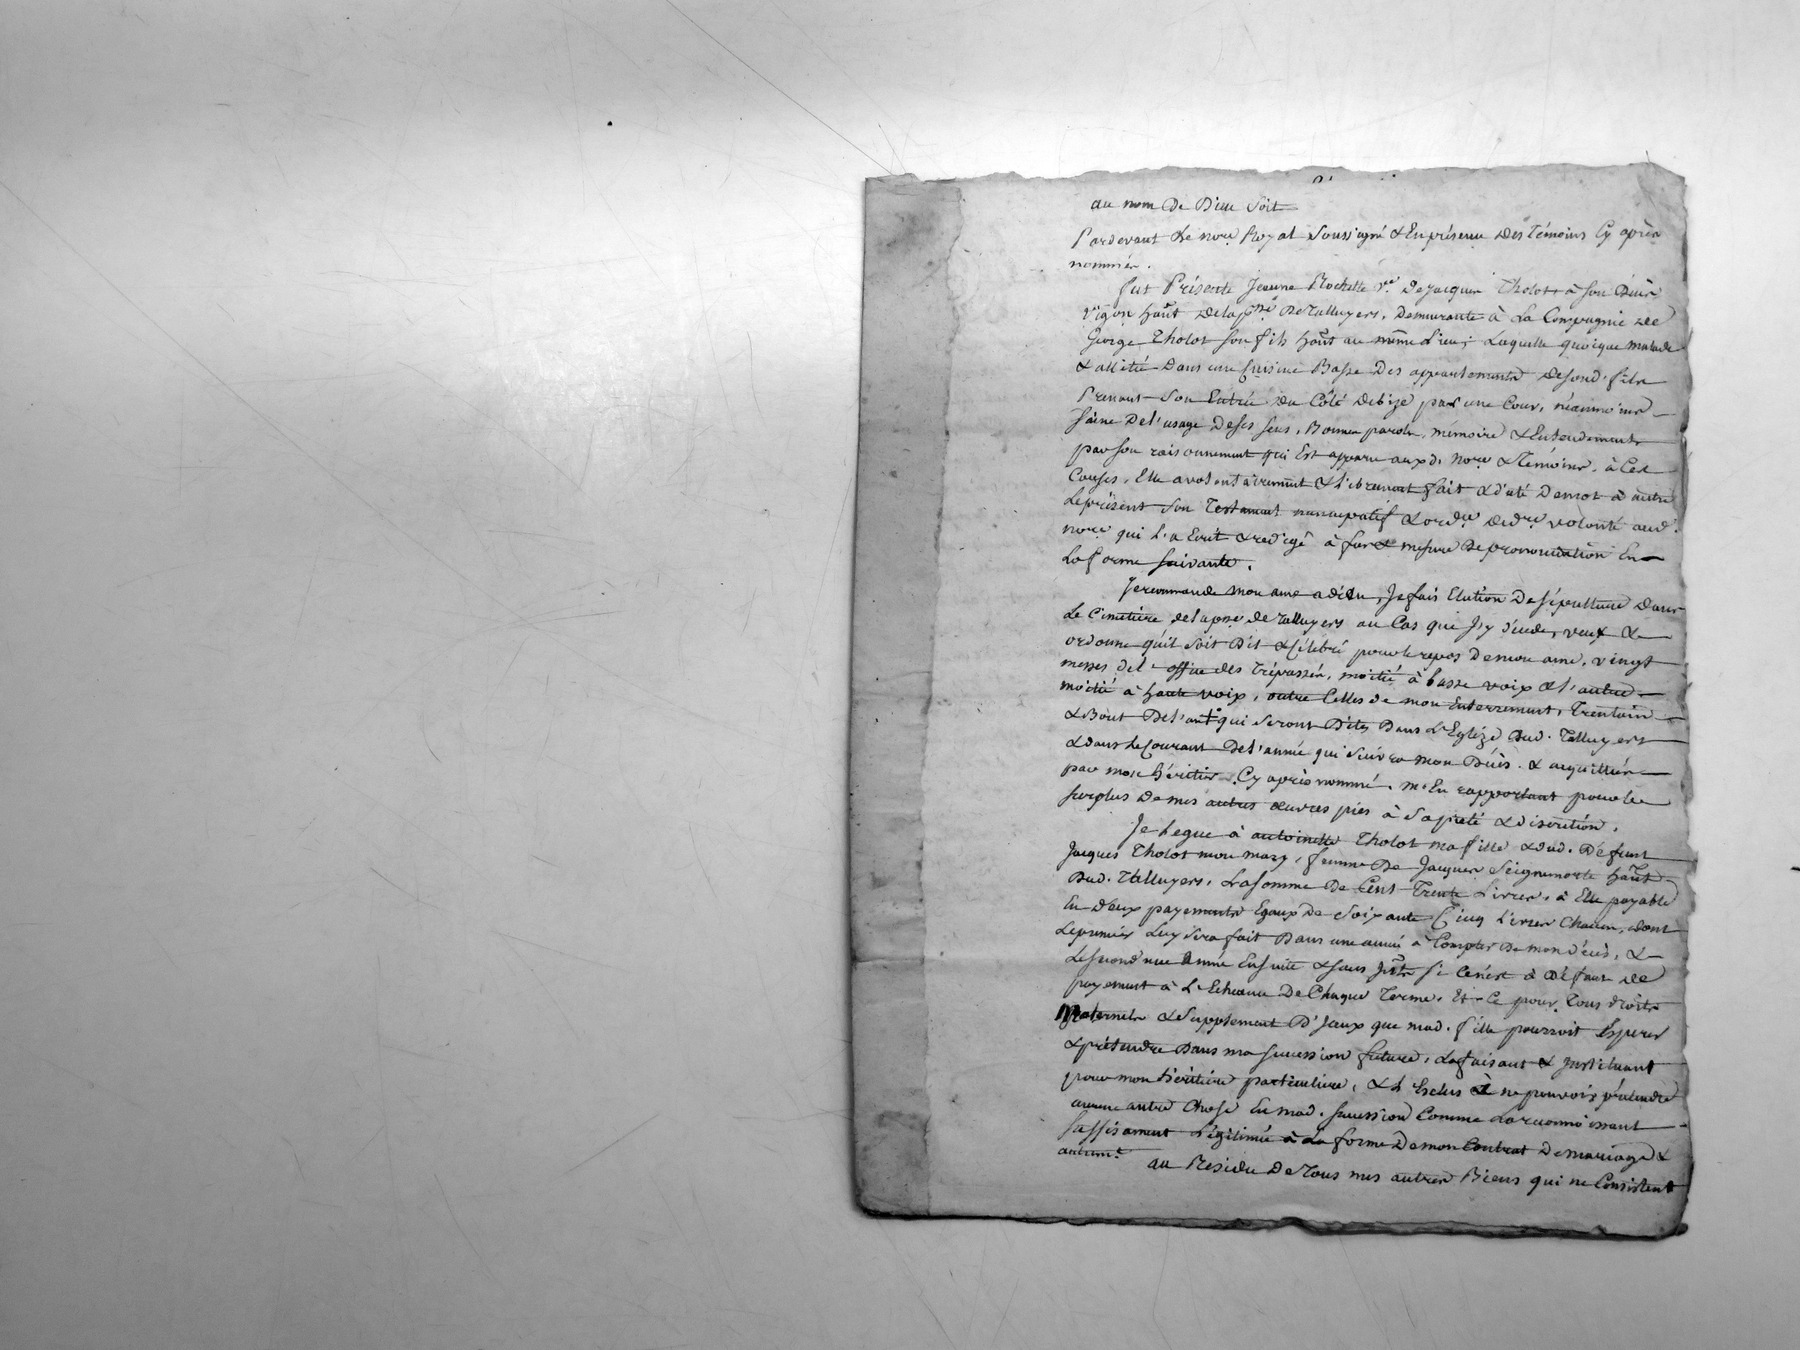 au nom De Dieu soit
Pardevant Le no.re Royal Soussigné & En présence Des Témoins Cy après
nommés.
fut Présente Jeanne Rochette v.e De Jacques Tholot, à son Décès
vigon habt. De la p.sse De Talluyers, Demeurante à La Compagnie De
George Tholot son fils habt. au même Lieu; Laquelle quoique malade
& allitée Dans une Cuisine Basse Des appartements De sond. fils
Prenant Son Entrée du Côté De bize par une Cour, néanmoins
saine De l'usage De ses sens, Bonne parole, mémoire & Entendement
par son raisonnement qui Est apparu auxd. no.re & Témoins, à Ces
Causes, Elle a volontairement & Librement fait & dicté De mot à autre
Le présent Son Testament nuncupatif & ord.re De d.re volonté aud.
no.re qui L'a Ecrit & redigé à fur & mesure De prononciation En
La forme suivante.
Je recommande mon ame a dieu, Je fais Election De sépulture Dans
Le Cimetière de la p.sse de Talluyers au Cas que J'y décede, veux &
ordonne qu'il soit Dit & Célébré pour le repos De mon ame, vingt
messes de l'office des Trépassés, moitié à basse voix & l'autre
moitié à haute voix, outre Celles de mon Enterrement, Trentain
& Bout De l'an qui seront Dites Dans L'Eglize Dud. Talluyers
& dans Le Courant De l'année qui suivra mon Décès. & acquittées
par mon héritier Cy après nommé. m'En rapportant pour le
surplus De mes autres œuvres pies à Sa piété & discrétion.
Je Legue à antoinette Tholot ma fille & dud. Défunt
Jacques Tholot mon mary, femme De Jacques Seignemorte habt.
Dud. Talluyers, La somme De Cent Trente Livres, à Elle payable
En Deux payements Egaux De Soixante Cinq Livres Chacun, dont
Le premier Luy sera fait Dans une année à Compter De mon décès, &
Le second une année Ensuite & sans Jnt.s si Ce n'est à Défaut De
payement à L'Echéance De Chaque Terme. Et Ce pour Tous droits
Maternels & Supplement D'Jceux que mad. fille pourroit Espérer
& prétendre Dans ma succession future, La faisant & Jnstituant
pour mon héritière particulière, & L'Exclus à ne pouvoir prétendre
aucune autre Chose En mad. succession Comme La reconnoissant
suffisament Légitimée à La forme De mon Contrat De mariage &
autrem.t
au Résidu De Tous mes autres Biens qui ne Consistent